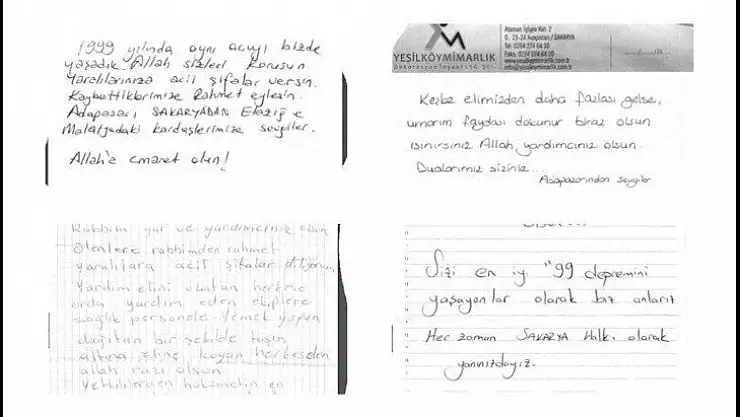 1999 yılında aynı acıyı bizde
yaşadık Allah sizleri korusun
Yaralılarınıza acil şifalar versin.
Kaybettiklerimize Rahmet eylesin.
Adapazarı SAKARYADAN Elazığ ve
Malatyadaki kardeşlerimize sevgiler.
Allah'a emanet olun!
YEŞİLKÖYMİMARLIK
Dekorasyon İnşaat Ltd. Şti.
Ataman İşhanı Kat: 2
D. 23-24 Adapazarı / SAKARYA
Tel: 0264 274 64 10
Faks: 0264 274 64 20
www.yesilkoymimarlik.com.tr
info@yesilkoymimarlik.com.tr
Keşke elimizden daha fazlası gelse,
umarım faydası dokunur biraz olsun
ısınırsınız Allah yardımcınız olsun.
Dualarımız sizinle...
Adapazarından sevgiler
Rabbim yar ve yardımcınız olsun
Ölenlere rabbimden rahmet
yaralılara acil şifalar diliyorum
Yardım elini uzatan herkese
orda yardım eden ekiplere
sağlık personele yemek yapan
dağıtan bir şekilde taşın
altına elini koyan herkesden
allah razı olsun
hükümetin en
Sizi en iyi "99 depremini
yaşayanlar olarak biz anlarız
Her zaman SAKARYA Halkı olarak
yanınızdayız.